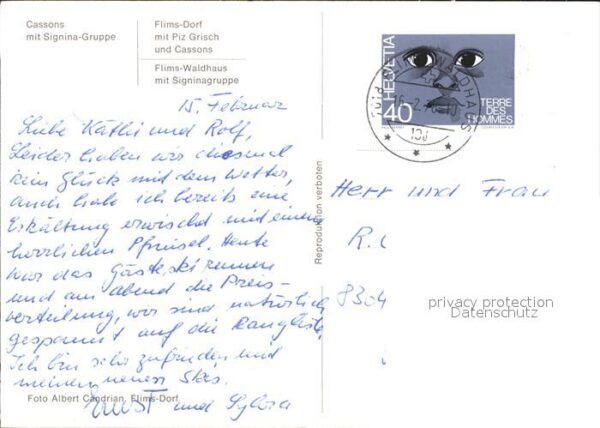 Cassons
mit Signina-Gruppe
Flims-Dorf
mit Piz Grisch
und Cassons
Flims-Waldhaus
mit Signinagruppe
15. Februar
Liebe Käthi und Rolf,
Leider haben wir diesmal
kein Glück mit dem Wetter,
auch habe ich bereits eine
Erkältung erwischt mit einem
herrlichen Pfnüsel. Heute
war das Gästeskirennen
und am abend die Preis-
verteilung, wir sind natürlich
gespannt auf die Rangliste.
Ich bin sehr zufrieden mit
meinen neuen Skis.
Ernst und Sylvia
Foto Albert Candrian, Flims-Dorf
Reproduktion verboten
HELVETIA
40
TERRE
DES
HOMMES
Herr und Frau
R.
8304
privacy protection
Datenschutz